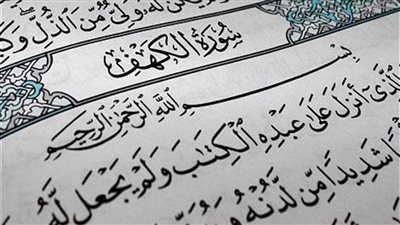 وَلِىٌّ مِّنَ ٱلذُّلِّ وَكَ
سُورَةُ ٱلْكَهْفِ
بِسْمِ ٱللَّهِ ٱلرَّحْمَٰنِ ٱلرَّحِيمِ
ٱلَّذِىٓ أَنزَلَ عَلَىٰ عَبْدِهِ ٱلْكِتَٰبَ وَلَمْ يَجْعَل لَّهُۥ
شَدِيدًا مِّن لَّدُنْهُ